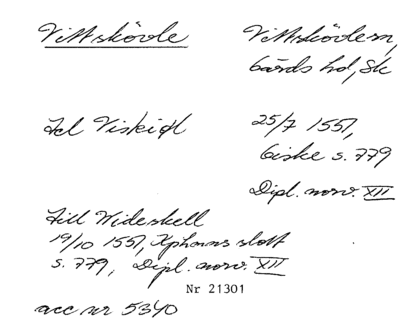 Vittskövle
Vittskövle sn,
Gärds hd, Sk
Tel Viskiøl
25/7 1551,
Giske s. 779
Dipl. norv. XII
Till Wideskell
19/10 1551, Kphamns slott
s. 779, Dipl. norv. XII
Nr 21301
acc nr 5340